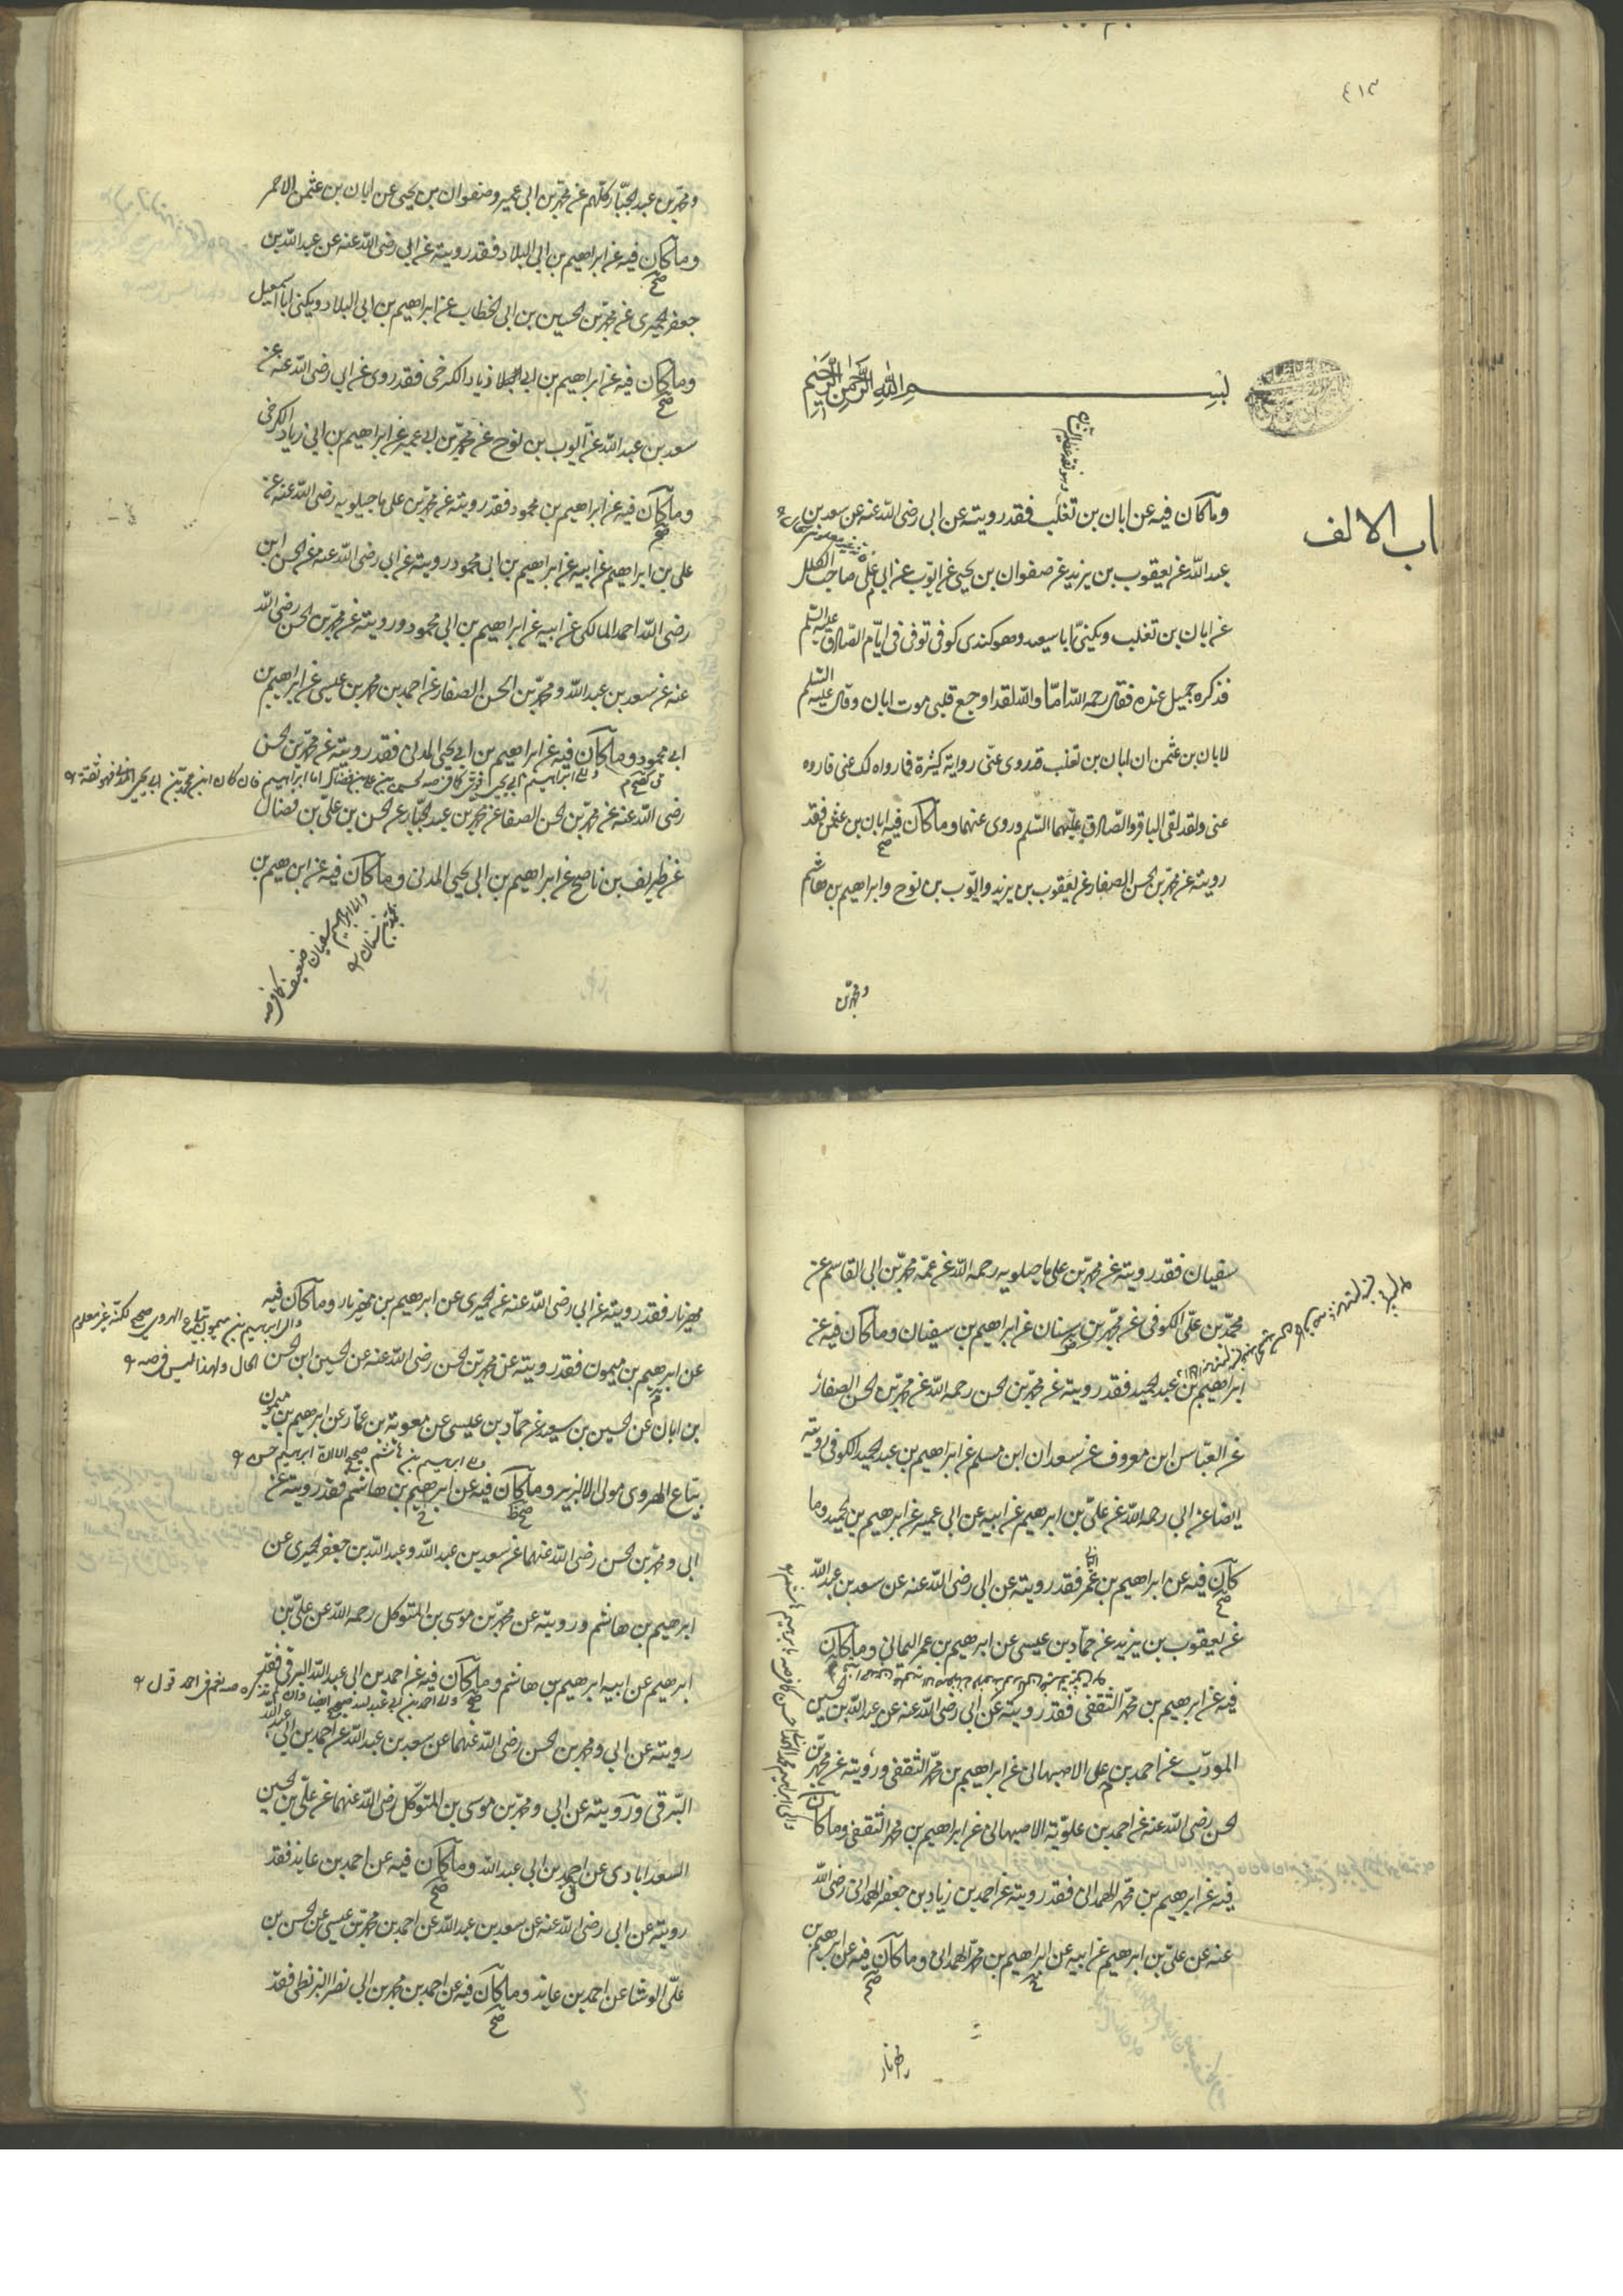 ٤١٣
بسم الله الرحمن الرحيم
باب الالف
وما كان فيه عن ابان بن تغلب فقد رويته عن ابى رضى الله عنه عن سعد بن
عبد الله عن يعقوب بن يزيد عن صفوان بن يحيى عن ايوب عن ابى على صاحب الكلل
عن ابان بن تغلب ويكنى ابا سعيد وهو كندى كوفى توفى فى ايام الصادق عليه السلم
فذكره جميل عنده فقال رحمه الله اما والله لقد اوجع قلبى موت ابان وقال عليه السلم
لابان بن عثمن ان ابان بن تغلب قد روى عنى رواية كثيرة فما رواه لك عنى فاروه
عنى ولقد لقى الباقر والصادق عليهما السلم وروى عنهما وما كان فيه ابان بن عثمن فقد
رويته عن محمد بن الحسن الصفار عن يعقوب بن يزيد وايوب بن نوح وابراهيم بن هاشم
ومحمد بن
ومحمد بن عبد الجبار كلهم عن محمد بن ابى عمير وصفوان بن يحيى عن ابان بن عثمن الاحمر
وما كان فيه عن ابراهيم بن ابى البلاد فقد رويته عن ابى رضى الله عنه عن عبد الله بن
جعفر الحميرى عن محمد بن الحسين بن ابى الخطاب عن ابراهيم بن ابى البلاد ويكنى ابا اسمعيل
وما كان فيه عن ابراهيم بن ابى زياد الكرخى فقد روى عن ابى رضى الله عنه عن
سعد بن عبد الله عن ايوب بن نوح عن محمد بن ابى عمير عن ابراهيم بن ابى زياد الكرخى
وما كان فيه عن ابراهيم بن محمود فقد رويته عن محمد بن على ماجيلويه رضى الله عنه عن
على بن ابراهيم عن ابيه عن ابراهيم بن ابى محمود رويته عن ابى رضى الله عنه عن الحسن ابن
رضى الله احمد المالكى عن ابيه عن ابراهيم بن ابى محمود ورويته عن محمد بن الحسن رضى الله
عنه عن سعد بن عبد الله ومحمد بن الحسن الصفار عن احمد بن محمد بن عيسى عن ابراهيم بن
ابى محمود وما كان فيه عن ابراهيم بن ابى يحيى المدنى فقد رويته عن محمد بن الحسن
رضى الله عنه عن محمد بن الحسن الصفار عن محمد بن عبد الجبار عن الحسن بن على بن فضال
عن ظريف بن ناصح عن ابراهيم بن ابى يحيى المدنى وما كان فيه عن ابرهيم بن
سفيان فقد رويته عن محمد بن على ماجيلويه رحمه الله عن عمه محمد بن ابى القاسم عن
محمد بن على الكوفى عن محمد بن سنان عن ابراهيم بن سفيان وما كان فيه عن
ابراهيم بن عبد الحميد فقد رويته عن محمد بن الحسن رحمه الله عن محمد بن الحسن الصفار
عن العباس ابن معروف عن سعدان ابن مسلم عن ابراهيم بن عبد الحميد الكوفى رويته
ايضا عن ابى رحمه الله عن على بن ابرهيم عن ابيه عن ابى عمير عن ابرهيم بن الحميد وما
كان فيه عن ابراهيم بن عمر فقد رويته عن ابى رضى الله عنه عن سعد بن عبد الله
عن يعقوب بن يزيد عن حماد بن عيسى عن ابرهيم بن عمر اليمانى وما كان
فيه عن ابرهيم بن محمد الثقفى فقد رويته عن ابى رضى الله عنه عن عبد الله بن الحسين
المودب عن احمد بن على الاصبهانى عن ابراهيم بن محمد الثقفى ورويته عن محمد بن
الحسن رضى الله عنه عن احمد بن علوية الاصبهانى عن ابراهيم بن محمد الثقفى وما كان
فيه عن ابرهيم بن محمد الهمدانى فقد رويته عن احمد بن زياد بن جعفر الهمدانى رضى الله
عنه عن على بن ابرهيم عن ابيه عن ابراهيم بن محمد الهمدانى وما كان فيه عن ابرهيم بن
مهزيار فقد رويته عن ابى رضى الله عنه عن الحميرى عن ابرهيم بن مهزيار وما كان فيه
عن ابرهيم بن ميمون فقد رويته عن محمد بن الحسن رضى الله عنه عن الحسين ابن الحسن
بن ابان عن الحسين بن سعيد عن حماد بن عيسى عن معوية بن عمار عن ابرهيم بن ميمون
بياع الهروى مولى الزبير وما كان فيه عن ابرهيم بن هاشم فقد رويته عن
ابى ومحمد بن الحسن رضى الله عنهما عن سعد بن عبد الله وعبد الله بن جعفر الحميرى عن
ابرهيم بن هاشم ورويته عن محمد بن موسى بن المتوكل رحمه الله عن على بن
ابرهيم عن ابيه ابرهيم بن هاشم وما كان فيه عن احمد بن ابى عبد الله البرقى فقد
رويته عن ابى ومحمد بن الحسن رضى الله عنهما عن سعد بن عبد الله عن احمد بن ابى عبد الله
البرقى ورويته عن ابى ومحمد بن موسى بن المتوكل رضى الله عنهما عن على بن الحسين
السعدابادى عن احمد بن ابى عبد الله وما كان فيه عن احمد بن عايذ فقد
رويته عن ابى رضى الله عنه عن سعد بن عبد الله عن احمد بن محمد بن عيسى عن الحسن بن
على الوشا عن احمد بن عايذ وما كان فيه عن احمد بن محمد بن ابى نصر البزنطى فقد